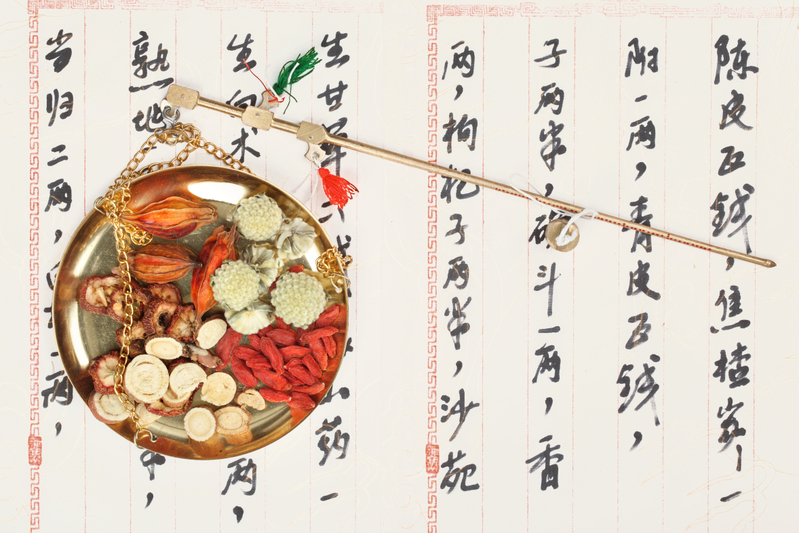 陈皮五钱，焦楂炭一
附一两，青皮五钱，
子两半，斗一两，香
两，枸杞子两半，沙苑
生甘草 山药一
生白术 两，
熟地
当归二两， 两，